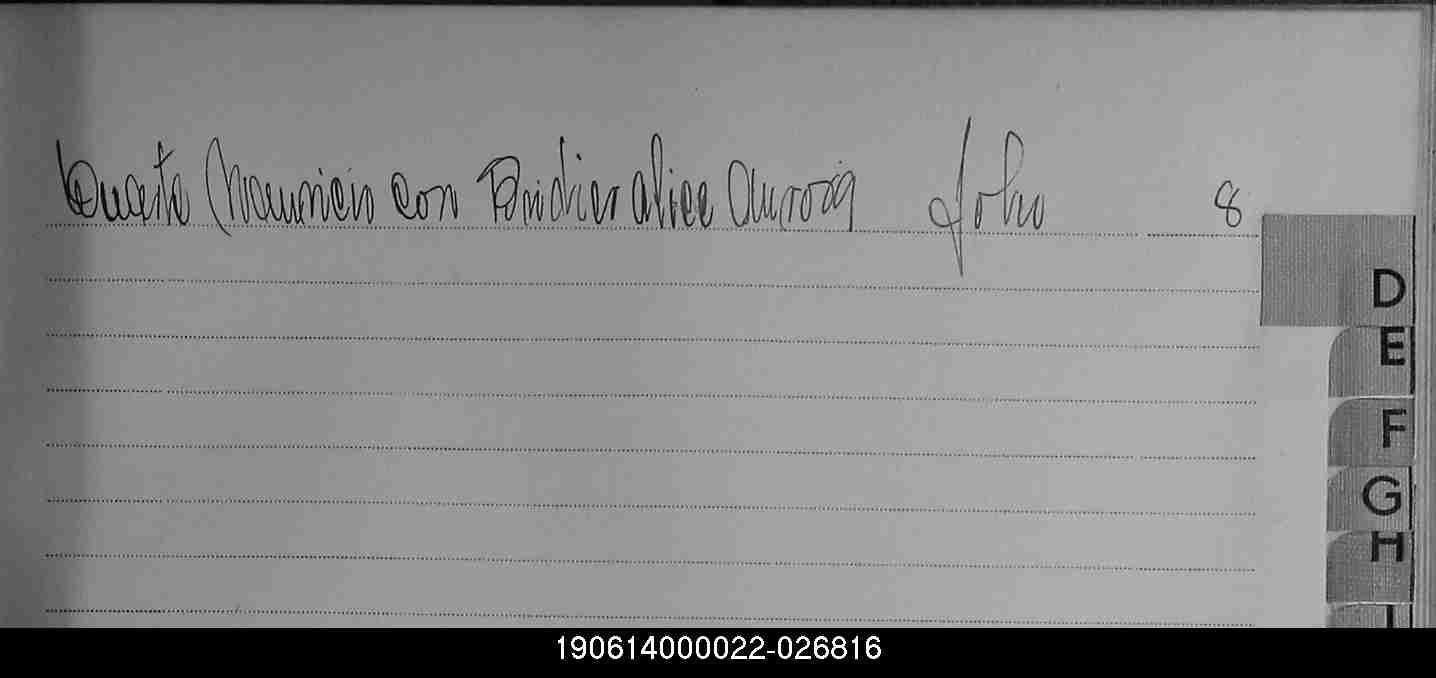 Duarte Mauricio con Bridier Alice Aurora folio 8
D
E
F
G
H
I
190614000022-026816